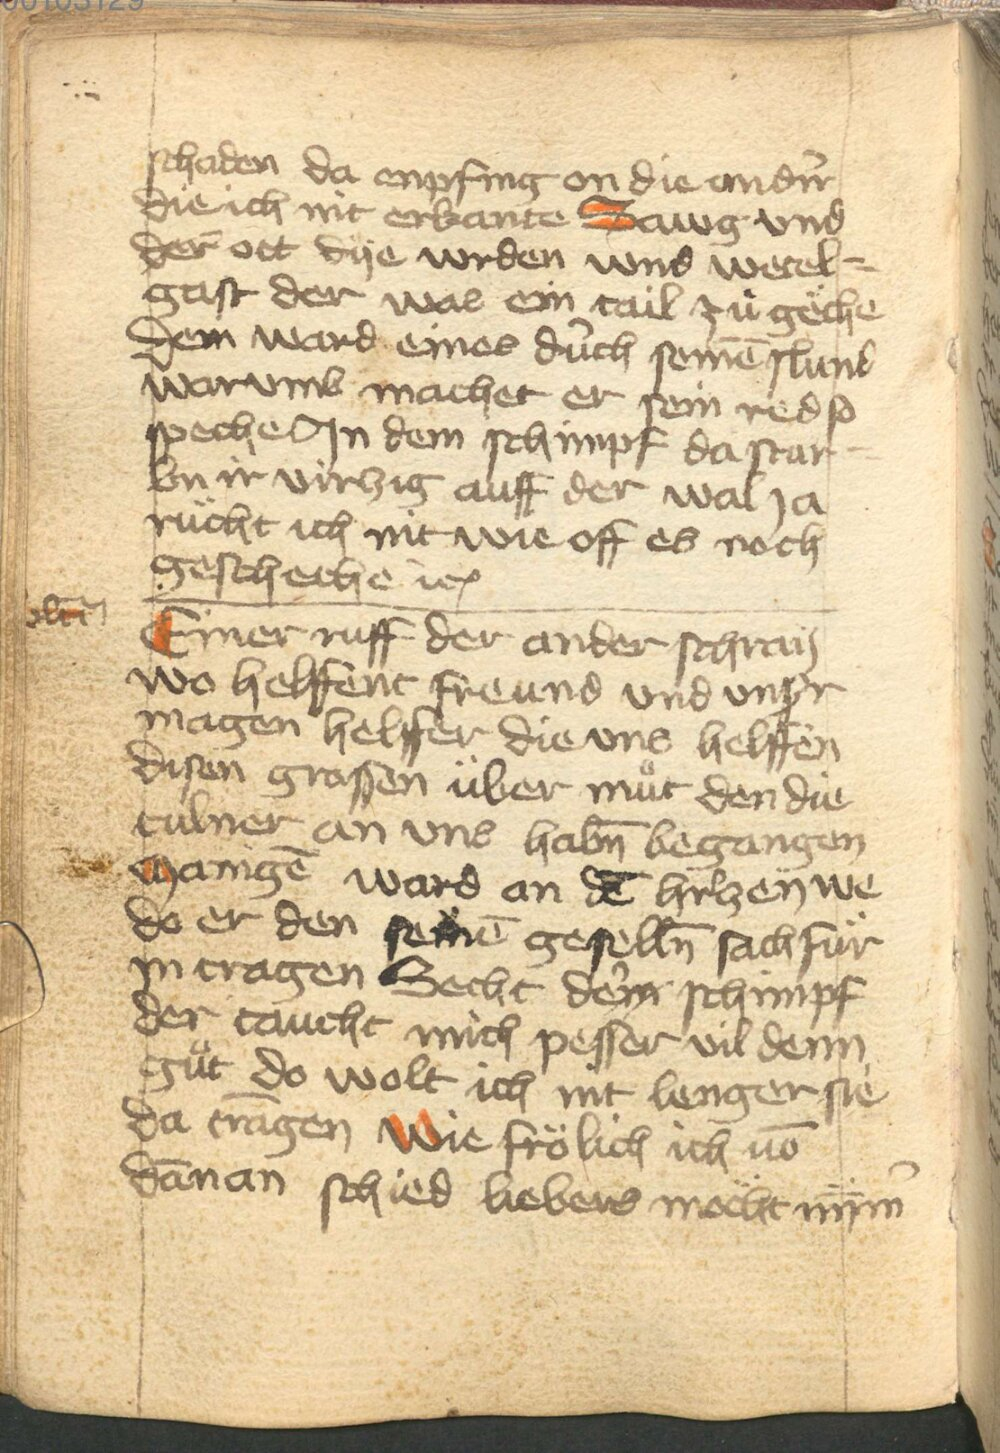 schaden da enpfing on die andr̄
die ich nit erkante Zawg vnd
der ott dÿe wrden vnd werel=
gast der was ein tail zu gëche
Dem ward eines durch seinē slund
warumb machet er sein red so
speche In dem schimpf da star=
bn ir virhzig auff der wal Ja
rücht ich nit wie off es noch
geschechhe ·
Einer ruff der ander schraÿ
wo helffent freund vnd vnsr
magen helffer die vns helffen
disen grossen über müt den die
tulner an vns habn̄ begangen
Maingē ward an dē hr̄hzen we
do er den seinē geselln̄ sach für
in tragen Secht dem schimpf
der taucht mich pesser vil denn
güt do wolt ich nit lenger sie
da trāgen Wie frölich ich vō
dānan schied liebers mocht nÿm̄